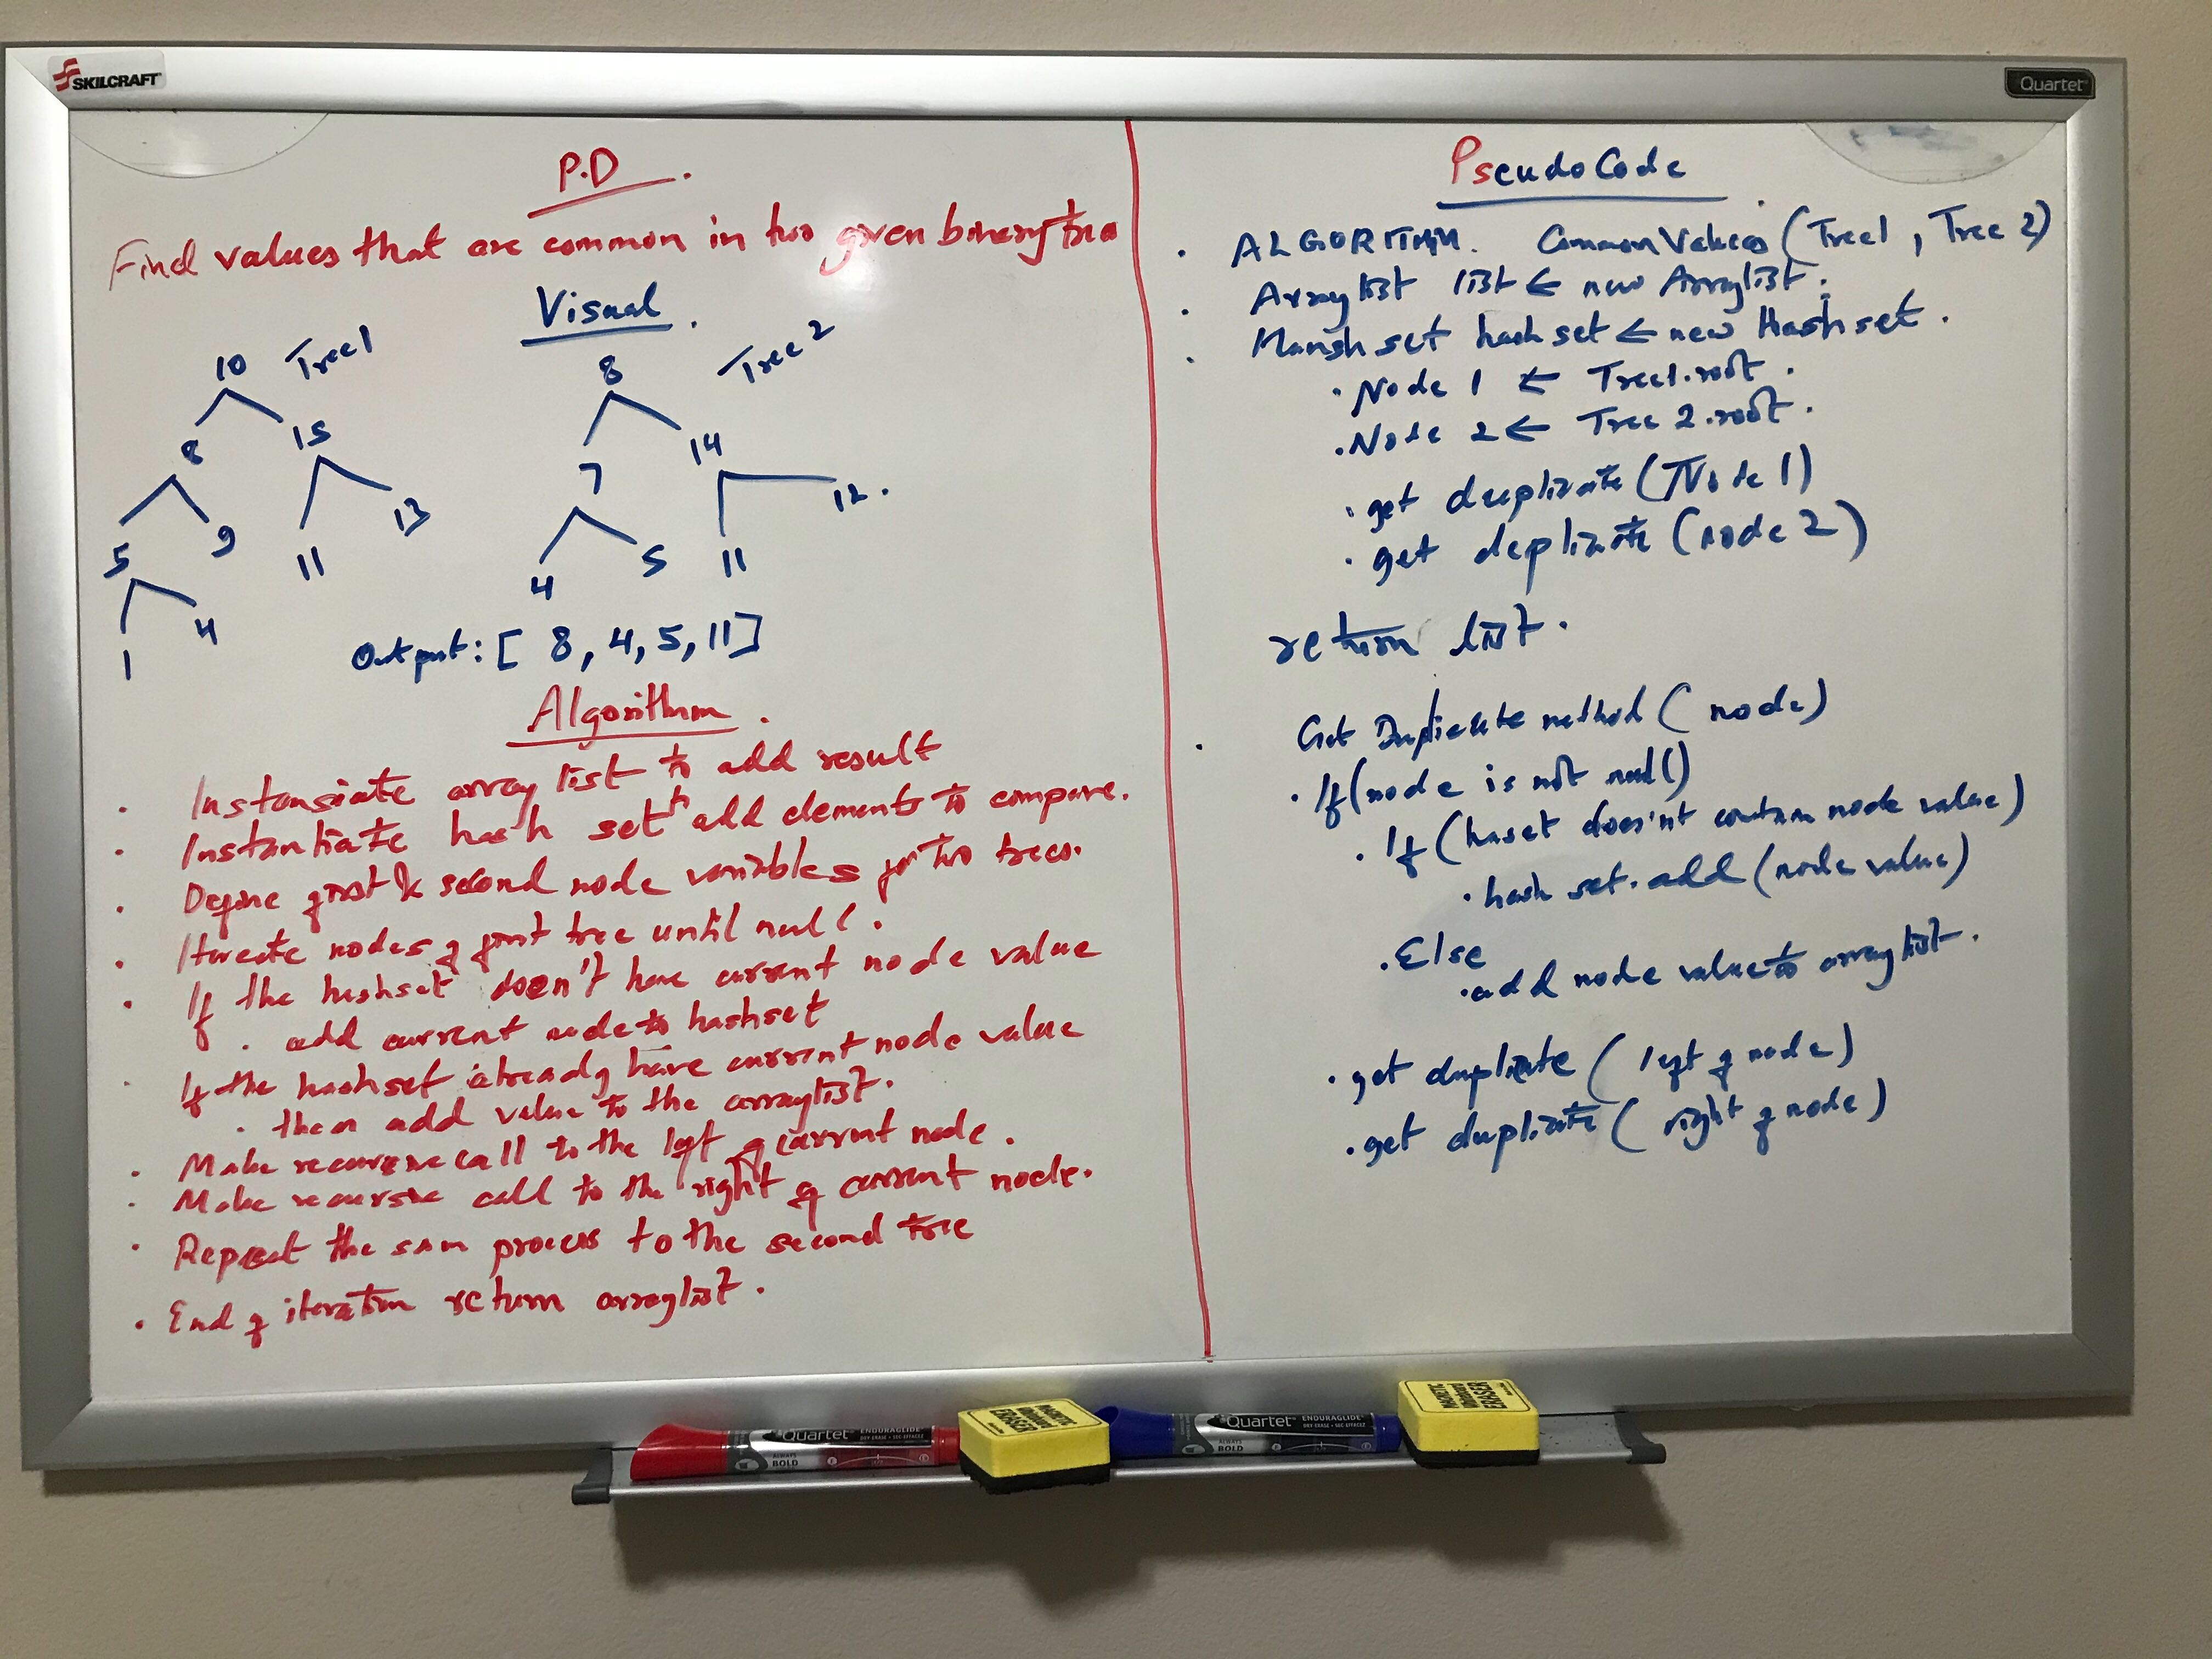 SKILCRAFT
Quartet
P.D.
Find values that are common in two given binary tree
Visual.
Tree1
10
8 15
5 9 11 13
1 4
Tree 2
8
7 14
4 5 11 12.
Output: [ 8, 4, 5, 11]
Algorithm.
· Instansiate array list to add result
· Instantiate hash set to add elements to compare.
· Define first & second node variables for two trees.
· Itreate nodes of first tree until null.
· If the hashset doesn't have current node value
· add current node to hashset
· If the hashset already have current node value
· then add value to the arraylist.
· Make recursive call to the left of current node.
· Make recursive call to the right of current node.
· Repeat the sam process to the second tree
· End of iteration return arraylist.
PseudoCode.
· ALGORITHM. CommonValues (Tree1, Tree 2)
· Arraylist list ← new Arraylist.
· hash set ← new Hashset.
· Node 1 ← Tree1.root.
· Node 2 ← Tree 2.root.
· get duplicate (Node 1)
· get duplicate (node 2)
return list.
· Get Duplicate method ( node)
· If(node is not null)
· If (haset does'nt contain node value)
· hash set.add (node value)
· Else
· add node value to arraylist.
· get duplicate ( left of node)
· get duplicate ( right of node)
Quartet ENDURAGLIDE
DRY-ERASE
ALWAYS
BOLD
MAGNETIC
ERASER
Quartet ENDURAGLIDE
DRY-ERASE
ALWAYS
BOLD
MAGNETIC
ERASER